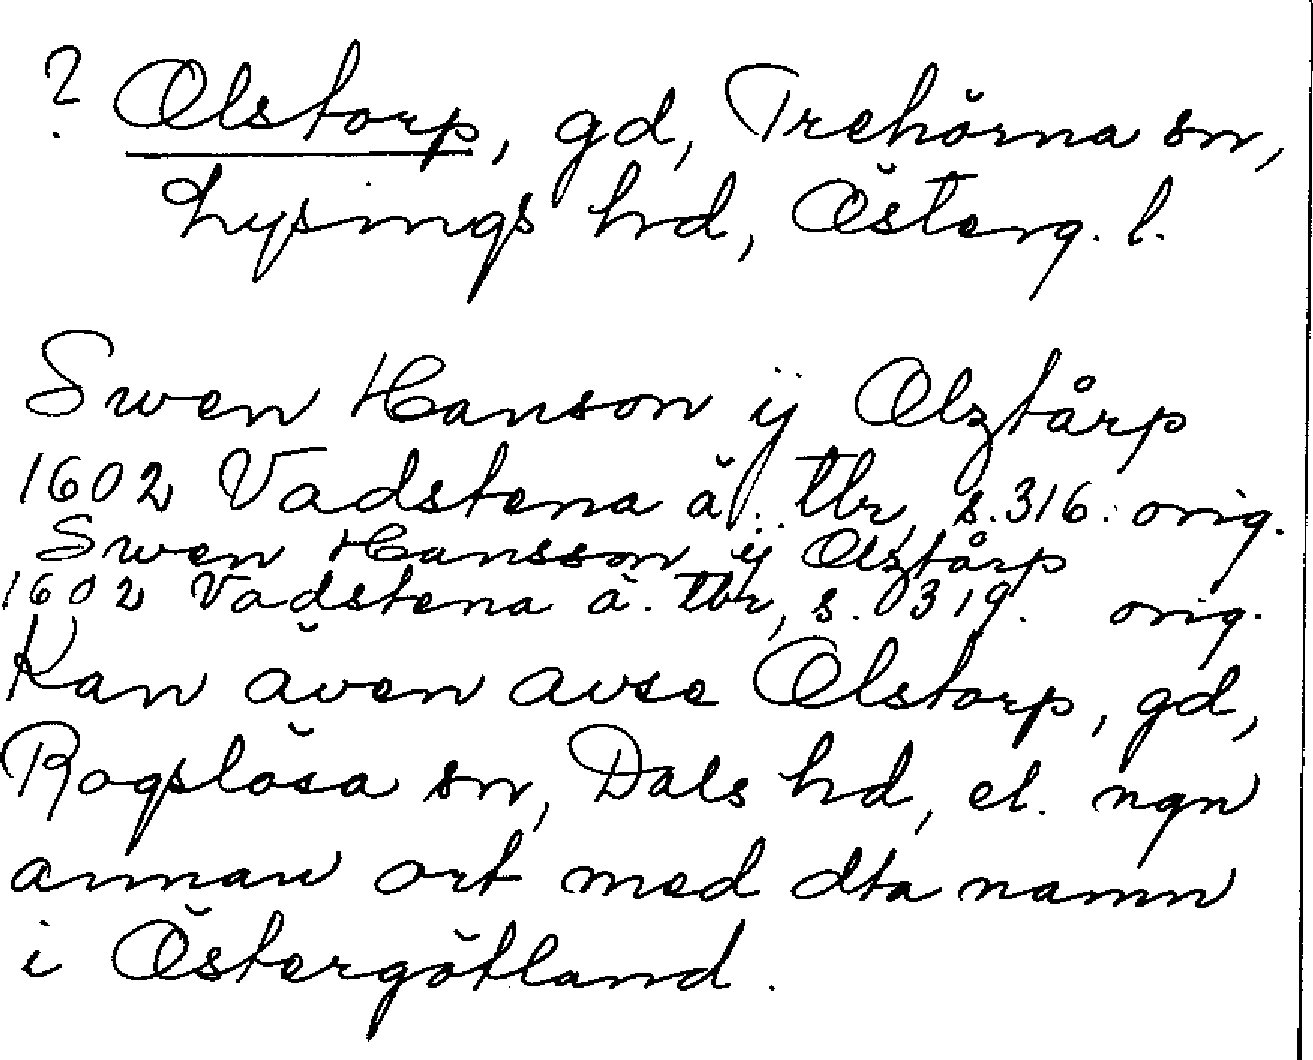 ? Olstorp, gd, Trehörna sn,
Lysings hd, Österg. l.
Swen Hanson ij Olztårp
1602 Vadstena ä. tbr, s. 316. orig.
Swen Hansson ij Olztårp
1602 Vadstena ä. tbr, s. 319. orig.
Kan även avse Olstorp, gd,
Rogslösa sn, Dals hd, el. ngn
annan ort med dta namn
i Östergötland.